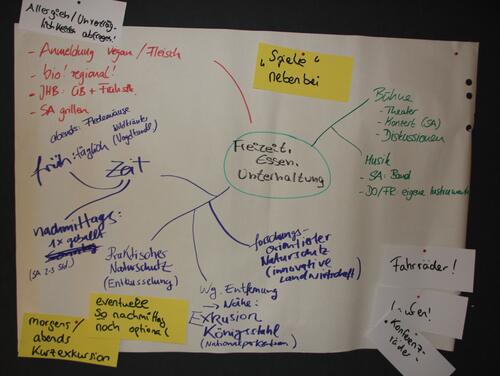 Allergien / Unverträg-
lichkeiten abfragen!
- Anmeldung vegan / Fleisch
- bio! regional!
- JHB: GB + Frühstk.
- SA grillen
"Spiele"
nebenbei
Bühne
- Theater
- Konzert (SA)
- Diskussionen
Musik
- SA: Band
- DO/FR: eigene Instrumente
Freizeit,
Essen,
Unterhaltung
abends: Fledermäuse
Wildkräuter
früh: täglich
(Vogelstunde)
Zeit
nachmittags:
1x geballt
(SA 2-3 Std.)
Praktisches
Naturschutz
(Entkusselung)
forschungs-
orientierter
Naturschutz
(innovative
Landwirtschaft)
Wg. Entfernung
→ Nähe:
Exkursion
Königsstuhl
(Nationalparkzentrum)
eventuell
So nachmittag
noch optional
morgens/
abends
Kurzexkursion
Fahrräder!
Konferenz-
räder